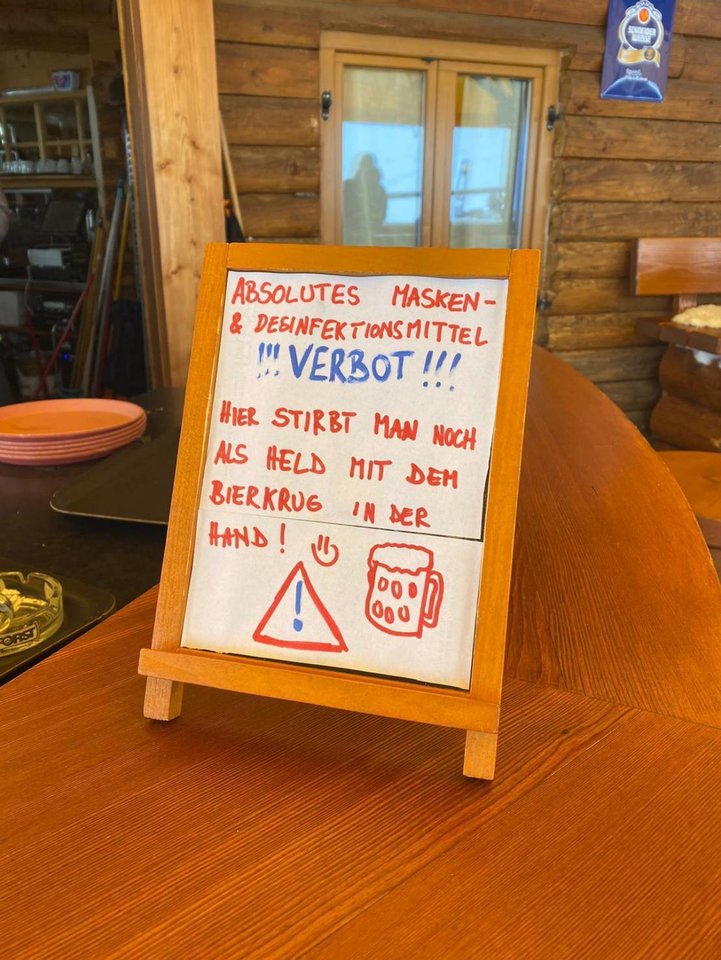 SCHNEIDER
WEISSE
ABSOLUTES MASKEN-
& DESINFEKTIONSMITTEL
!!! VERBOT !!!
HIER STIRBT MAN NOCH
ALS HELD MIT DEM
BIERKRUG IN DER
HAND!
!
FORST